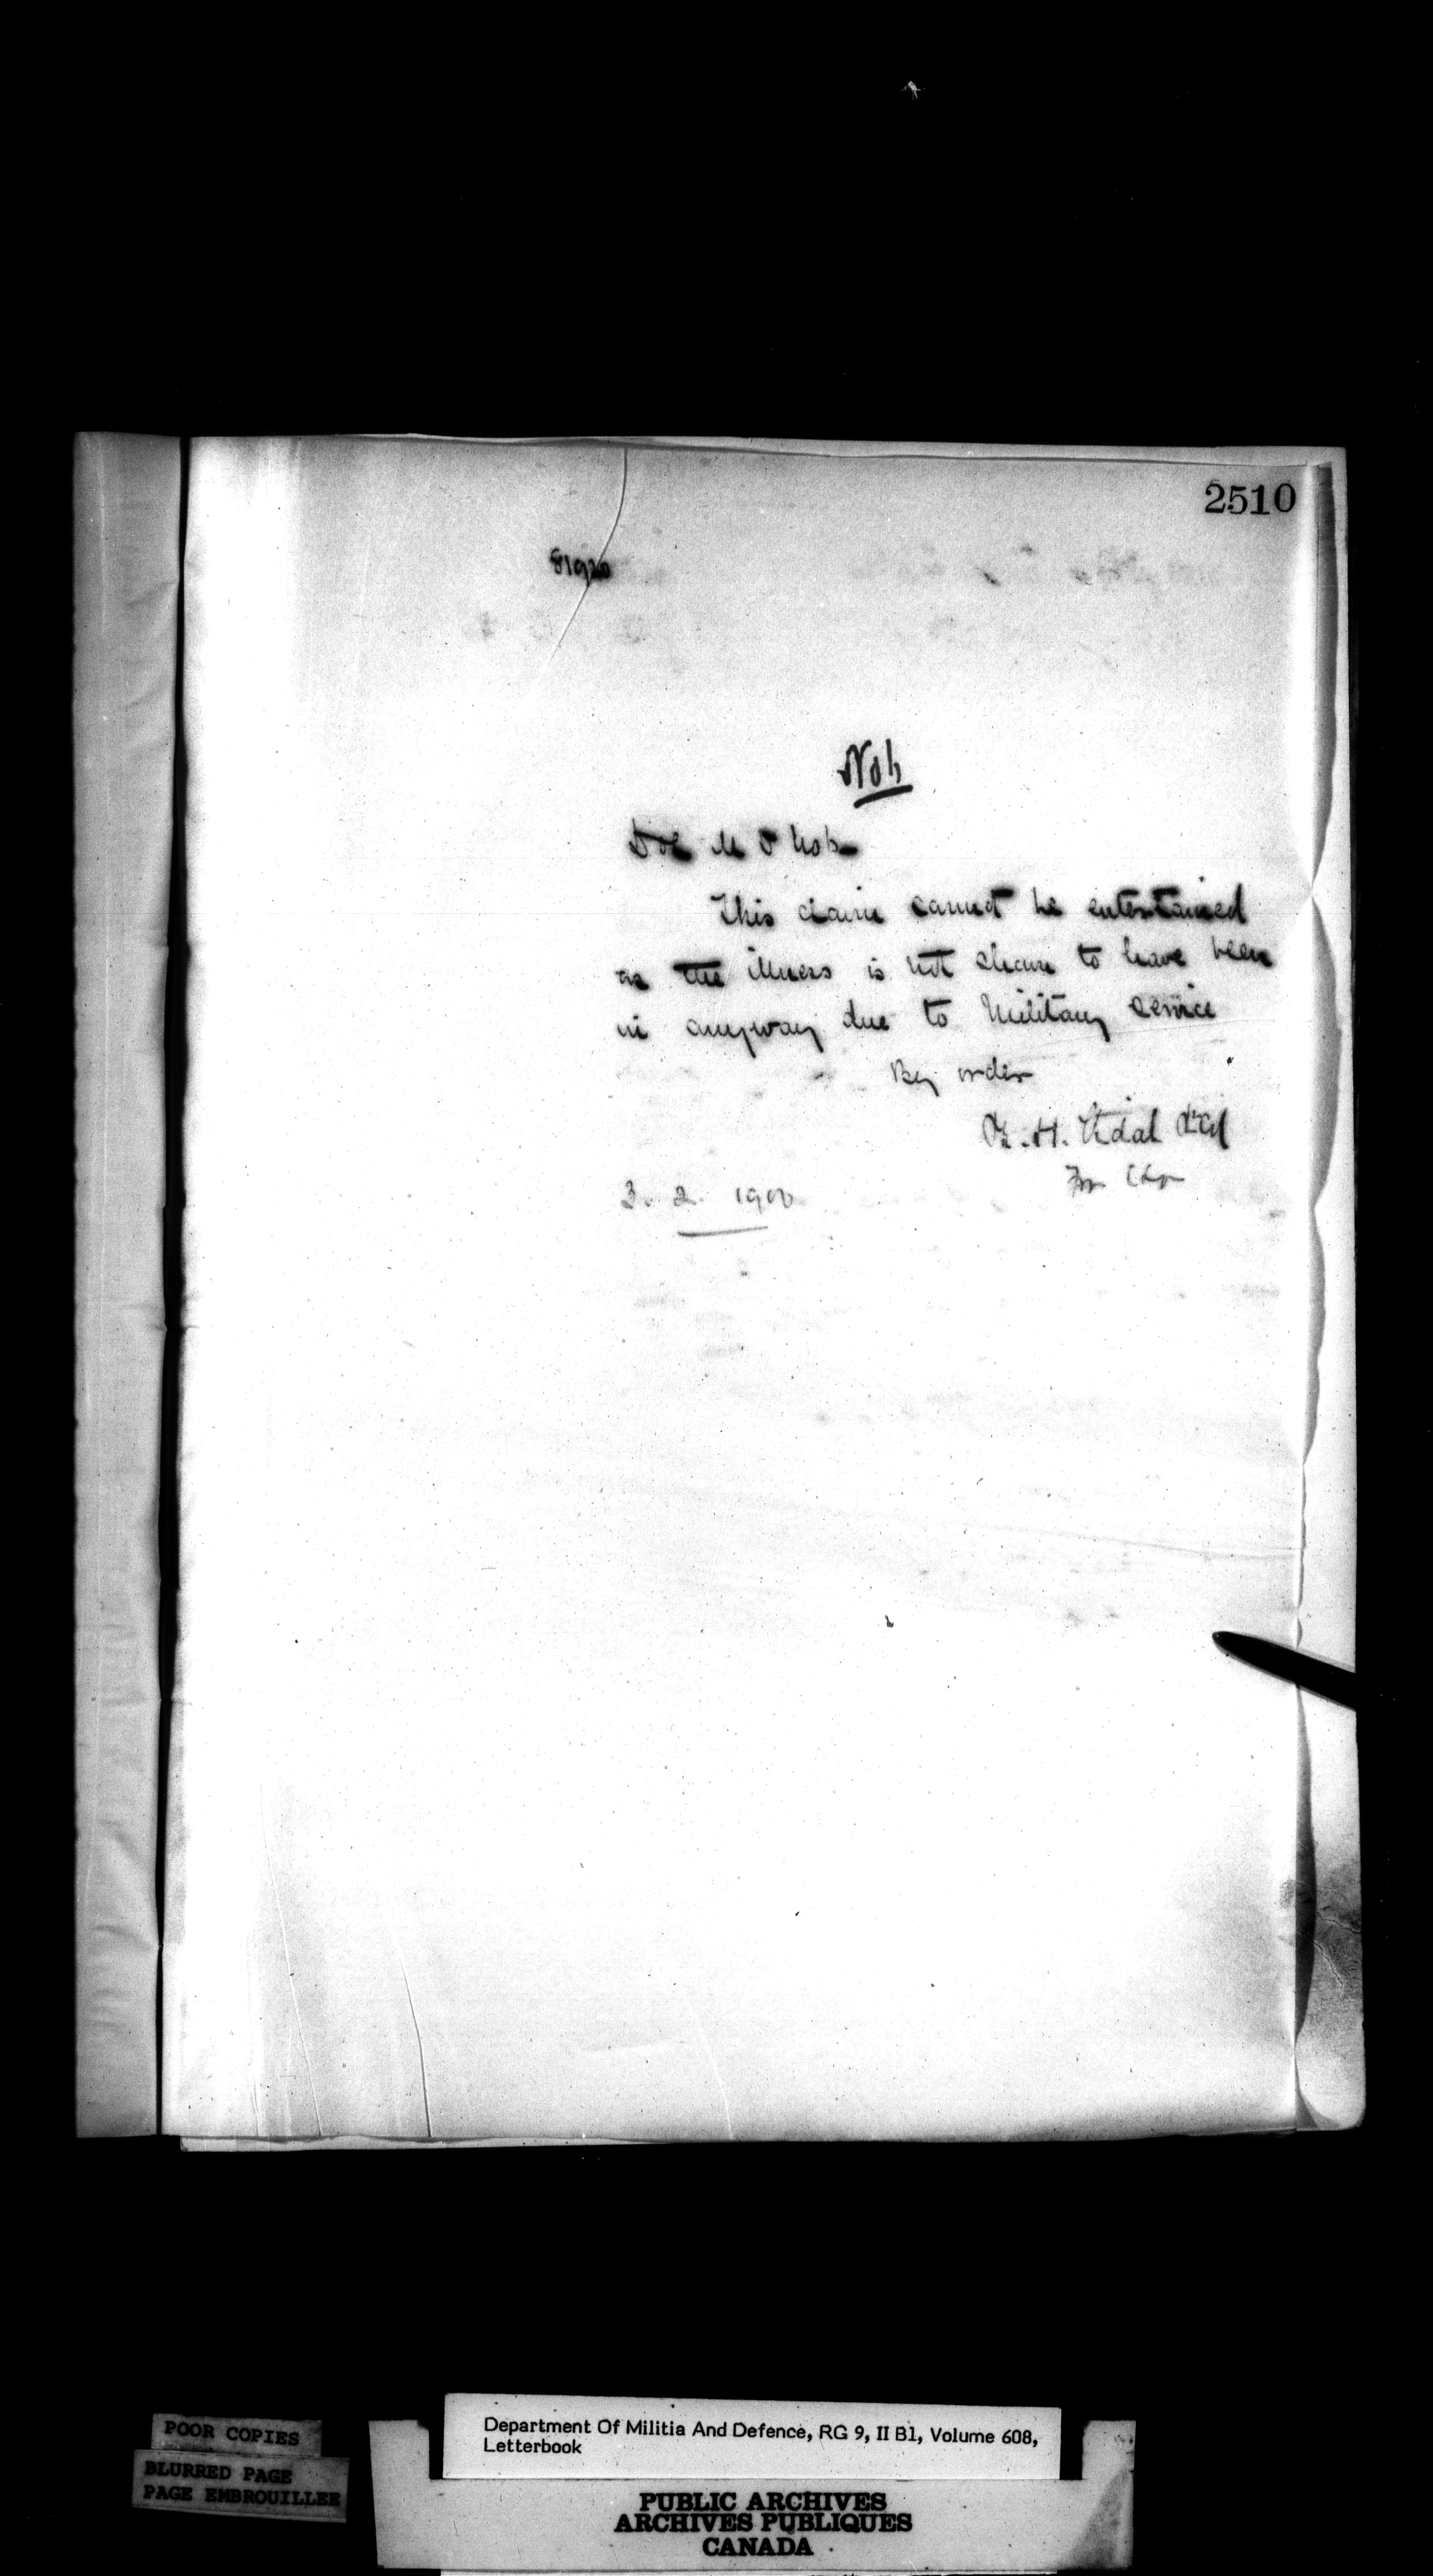 2510
81920
This claim cannot be entertained
as the illness is not shown to have been
in anyway due to Military service
By order
H. Vidal
For
3. 2. 1900
POOR COPIES
BLURRED PAGE
PAGE EMBROUILLEE
Department Of Militia And Defence, RG 9, II B1, Volume 608,
Letterbook
PUBLIC ARCHIVES
ARCHIVES PUBLIQUES
CANADA